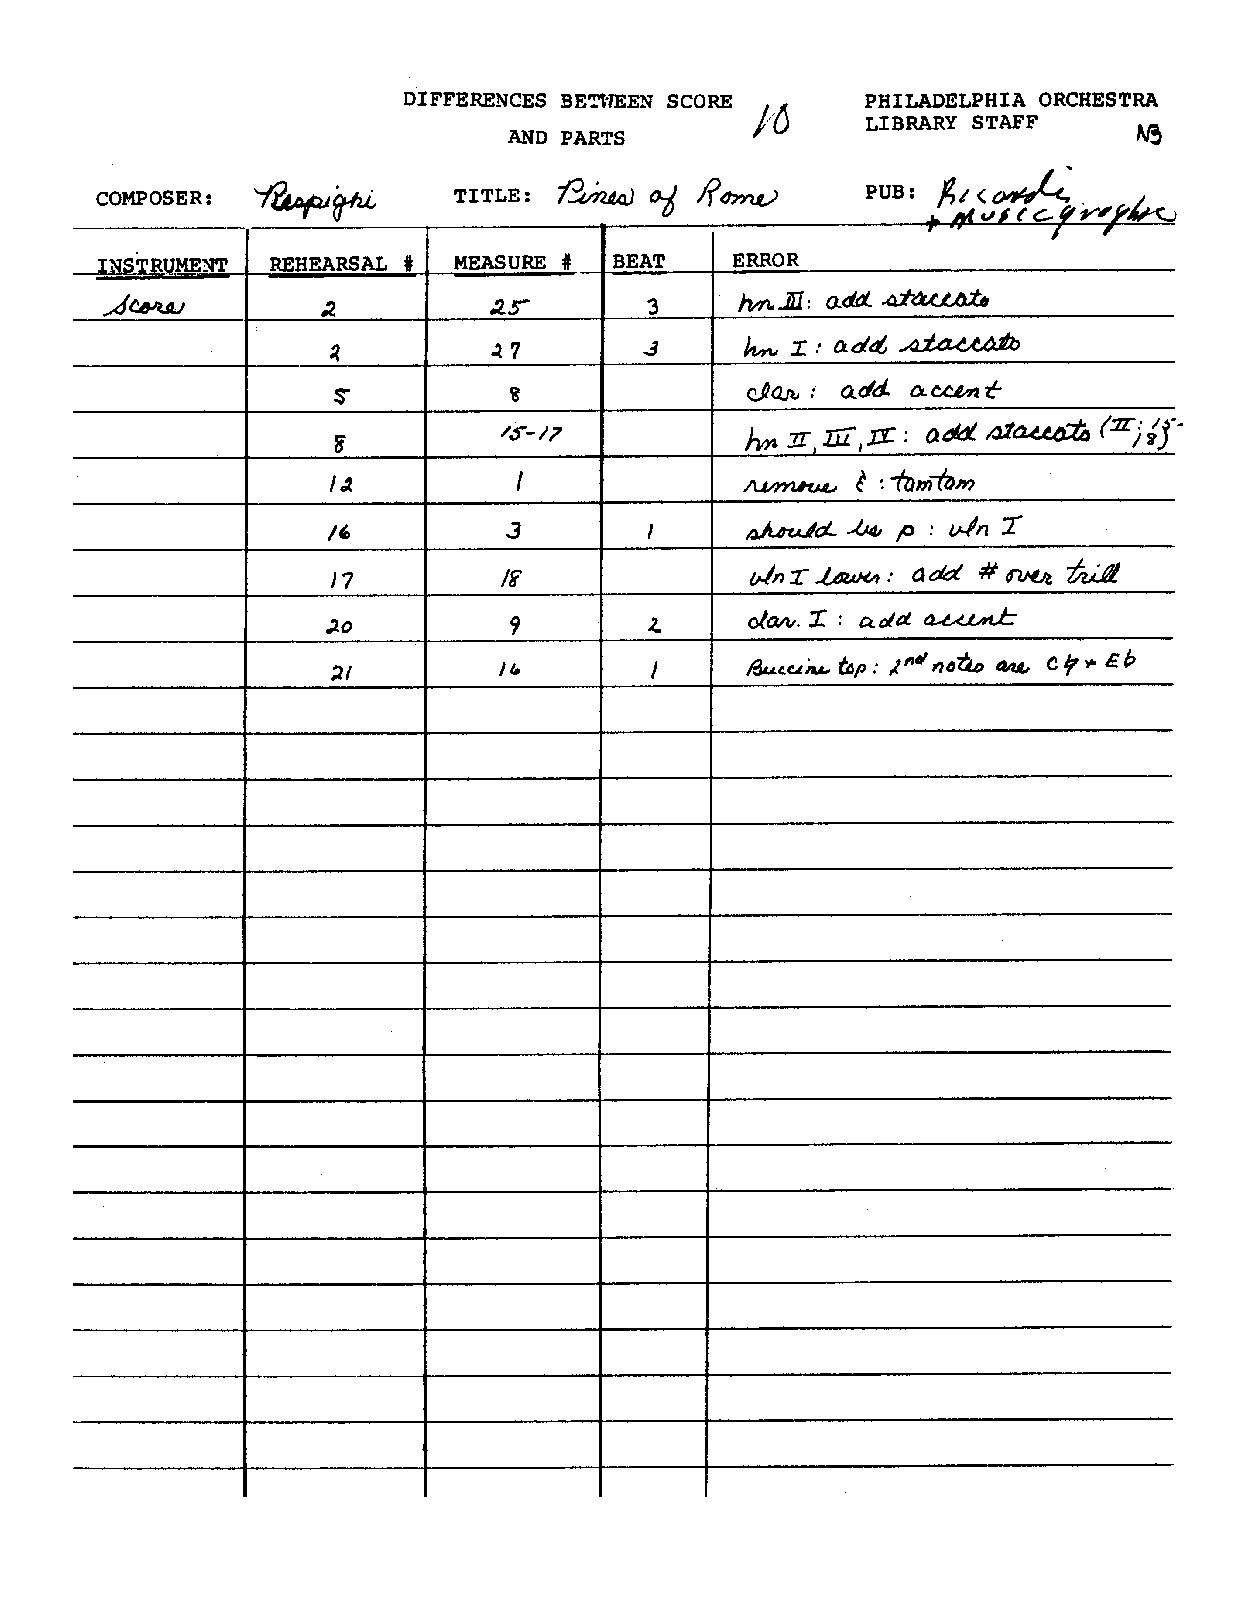 DIFFERENCES BETWEEN SCORE
AND PARTS
10
PHILADELPHIA ORCHESTRA
LIBRARY STAFF
NB
COMPOSER: Respighi TITLE: Pines of Rome PUB: Ricordi
+ Musicgraphic
INSTRUMENT REHEARSAL # MEASURE # BEAT ERROR
Score 2 25 3 hn III: add staccato
2 27 3 hn I: add staccato
5 8 clar: add accent
8 15-17 hn II, III, IV: add staccato (II; 15-18)
12 1 remove : tamtam
16 3 1 should be p : vln I
17 18 vln I lower: add # over trill
20 9 2 clar. I: add accent
21 16 1 Buccine top: 2nd notes are C♮ + Eb